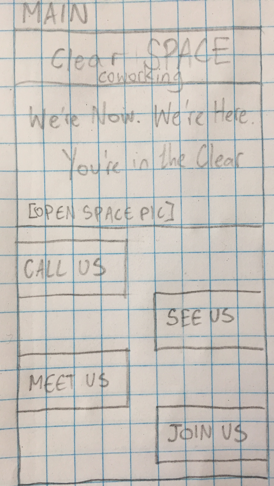 MAIN
Clear SPACE
coworking
We're Now. We're Here.
You're in the Clear
[OPEN SPACE PIC]
CALL US
SEE US
MEET US
JOIN US